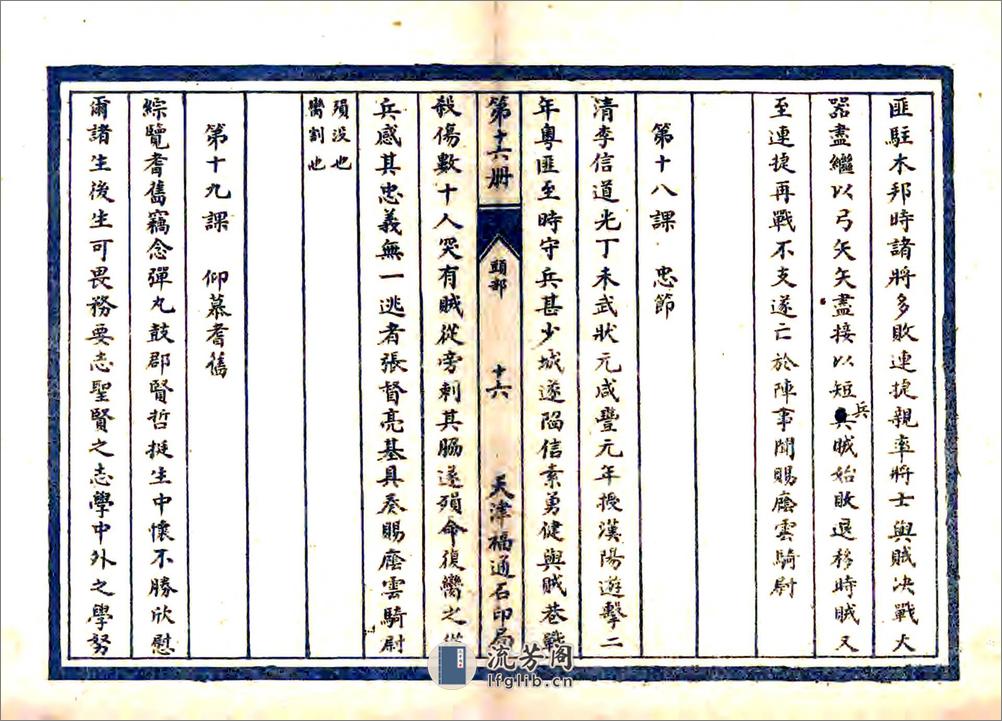 匪駐木邦時諸將多敗連捷親率將士與賊決戰火
器盡繼以弓矢矢盡接以短兵賊始敗退移時賊又
至連捷再戰不支遂亡於陣事聞賜廕雲騎尉
第十八課 忠節
清李信道光丁未武狀元咸豐元年授漢陽遊擊二
年粵匪至時守兵甚少城遂陷信素勇健與賊巷戰
第十六册 頭部 十六 天津福通石印局
殺傷數十人突有賊從旁刺其腸遂殞命復臠之從
兵感其忠義無一逃者張督亮基具奏賜廕雲騎尉
殞没也
臠割也
第十九課 仰慕耆舊
綜覽耆舊竊念彈丸鼓郡賢哲挺生中懷不勝欣慰
爾諸生後生可畏務要志聖賢之志學中外之學努
流芳阁
lfglib.cn